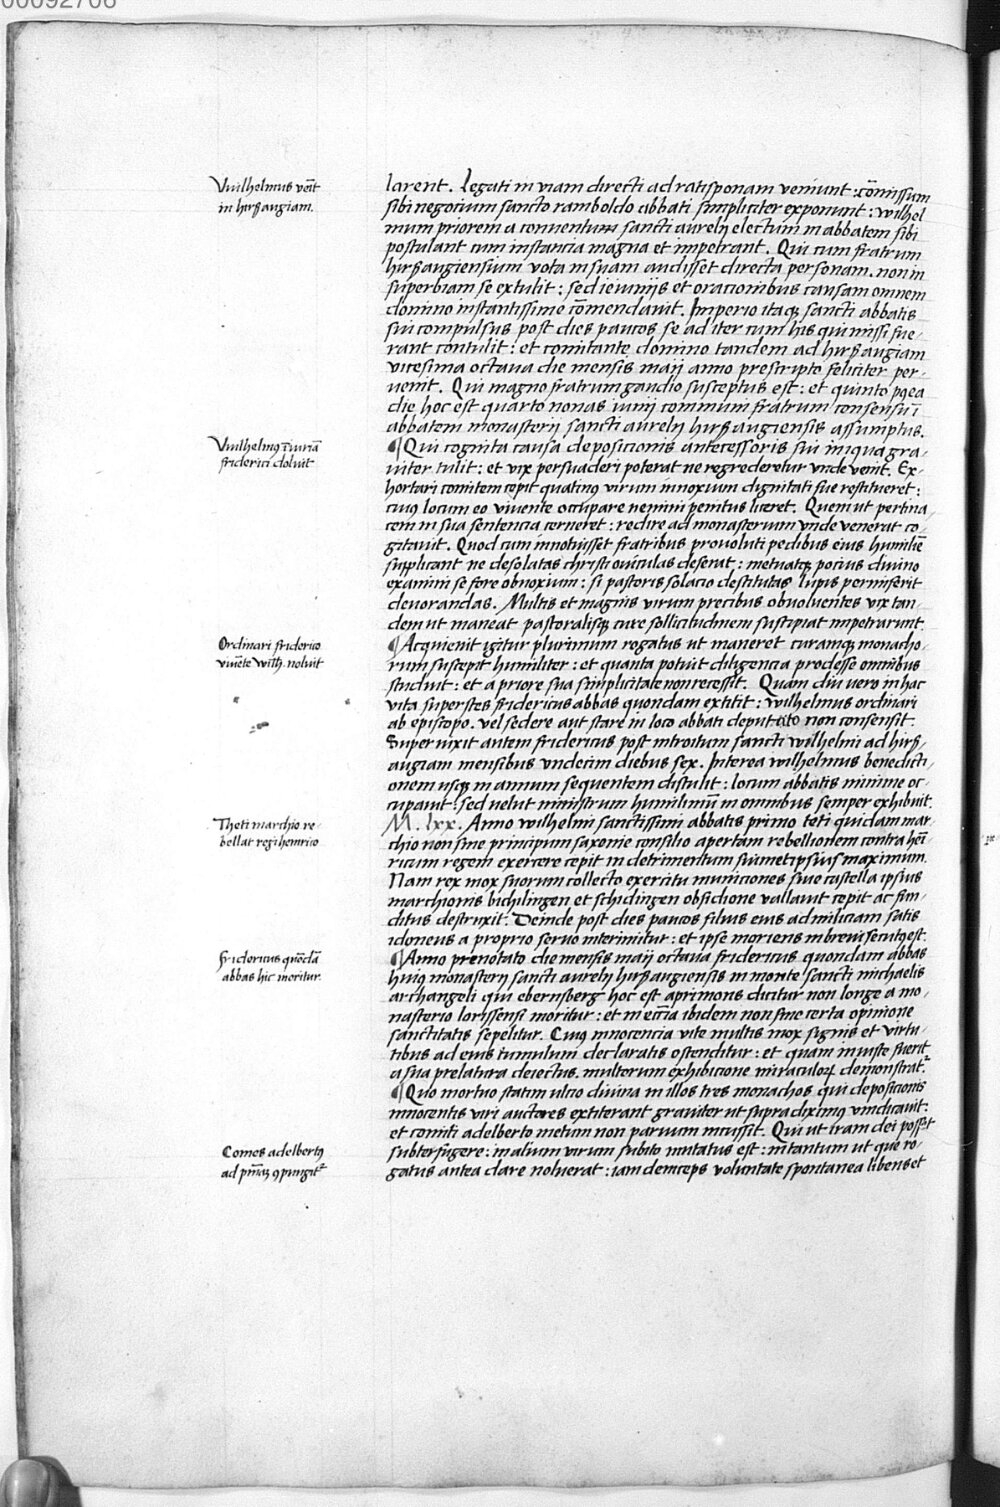 00092706
Wilhelmus venit
in hirsaugiam.
larent. Legati in viam directi ad ratisponam veniunt: cōmissum
sibi negocium sancto ramboldo abbati simpliciter exponunt: wilhel
mum priorem a conventum sancti aurelij electum in abbatem sibi
postulant cum instancia magna et impetrant. Qui cum fratrum
hirsaugiensium vota in suam audisset directa personam. non in
superbiam se extulit: sed ieiunijs et oracionibus causam omnem
domino instantissime cōmendauit. Imperio itaqȝ sancti abbatis
sui compulsus post dies paucos se ad iter cum his qui missi fue-
rant contulit: et comitante domino tandem ad hirsaugiam
vicesima octaua die mensis maij anno prescripto feliciter per-
uenit. Qui magno fratrum gaudio susceptus est: et quinto postea
die hoc est quarto nonas iunij communi fratrum consensu ī
abbatem monasterij sancti aurelij hirsaugiensis assumptus.
Wilhelmus iniuriā
friderici doluit
¶ Qui cognita causa deposicionis antecessoris sui iniqua gra-
uiter tulit: et vix persuaderi poterat ne regrederetur vnde venit. Ex-
hortari comitem cepit quatinus virum innoxium dignitati sue restitueret:
cuius locum eo viuente occupare nemini penitus liceret. Quem ut pertina-
cem in sua sentencia cerneret: redire ad monasterium vnde venerat co-
gitauit. Quod cum innotuisset fratribus prouoluti pedibus eius humilit̄
supplicant ne desolatas christi ouiculas deserat: metuatqȝ pocius diuino
examini se fore obnoxium: si pastoris solacio destitutas lupis permiserit
deuorandas. Multis et magnis virum precibus obuoluentes vix tan-
dem ut maneat pastoralisqȝ cure sollicitudinem suscipiat impetrarunt.
Ordinari friderico
viuēte wilh. noluit
¶ Acquieuit igitur plurimum rogatus ut maneret curamqȝ monacho-
rum suscepit humiliter: et quanta potuit diligencia prodesse omnibus
studuit: et a priore sua simplicitate non recessit. Quam diu vero in hac
vita superstes fridericus abbas quondam extitit: wilhelmus ordinari
ab episcopo. vel sedere aut stare in loco abbati deputato non consensit.
Superuixit autem fridericus post introitum sancti wilhelmi ad hirs-
augiam mensibus vndecim diebus sex. Interea wilhelmus benedicti-
onem usqȝ in annum sequentem distulit: locum abbatis minime oc-
cupauit: sed velut ministrum humilimū in omnibus semper exhibuit.
Theti marchio re-
bellat regi henrico
M. lxx. Anno wilhelmi sanctissimi abbatis primo teti quidam mar-
chio non sine principum saxonie consilio apertam rebellionem contra hēn
ricum regem exercere cepit in detrimentum suimetipsius maximum.
Nam rex mox suorum collecto exercitu municiones siue castella ipsius
marchionis bichilingen et schidingen obsidione vallauit cepit ac fun-
ditus destruxit. Deinde post dies paucos filius eius ad miliciam satis
idoneus a proprio seruo interimitur: et ipse moriens in breui secutus est.
Fridericus quōdā
abbas hic moritur.
¶ Anno prenotato die mensis maij octaua fridericus quondam abbas
huius monasterij sancti aurelij hirsaugiensis in monte sancti michaelis
archangeli qui ebernsberg hoc est aprimons dicitur non longe a mo-
nasterio lorissensi moritur: et in ecc̄ia ibidem non sine certa opinione
sanctitatis sepelitur. Cuius innocencia vite multis mox signis et virtu-
tibus ad eius tumulum declaratis ostenditur: et quam iniuste fuerit
a sua prelatura deiectus. multorum exhibicione miraculoꝝ demonstrat̄.
¶ Quo mortuo statim ulcio diuina in illos tres monachos qui deposicionis
innocentis viri auctores extiterant grauiter ut supra diximus vindicauit:
et comiti adelberto metum non paruum incussit. Qui ut iram dei posset
Comes adelbertus
ad pn̄iaȝ ꝯpungit̄
subterfugere: in alium virum subito mutatus est: intantum ut que ro-
gatus antea dare noluerat: iam deinceps voluntate spontanea libens et